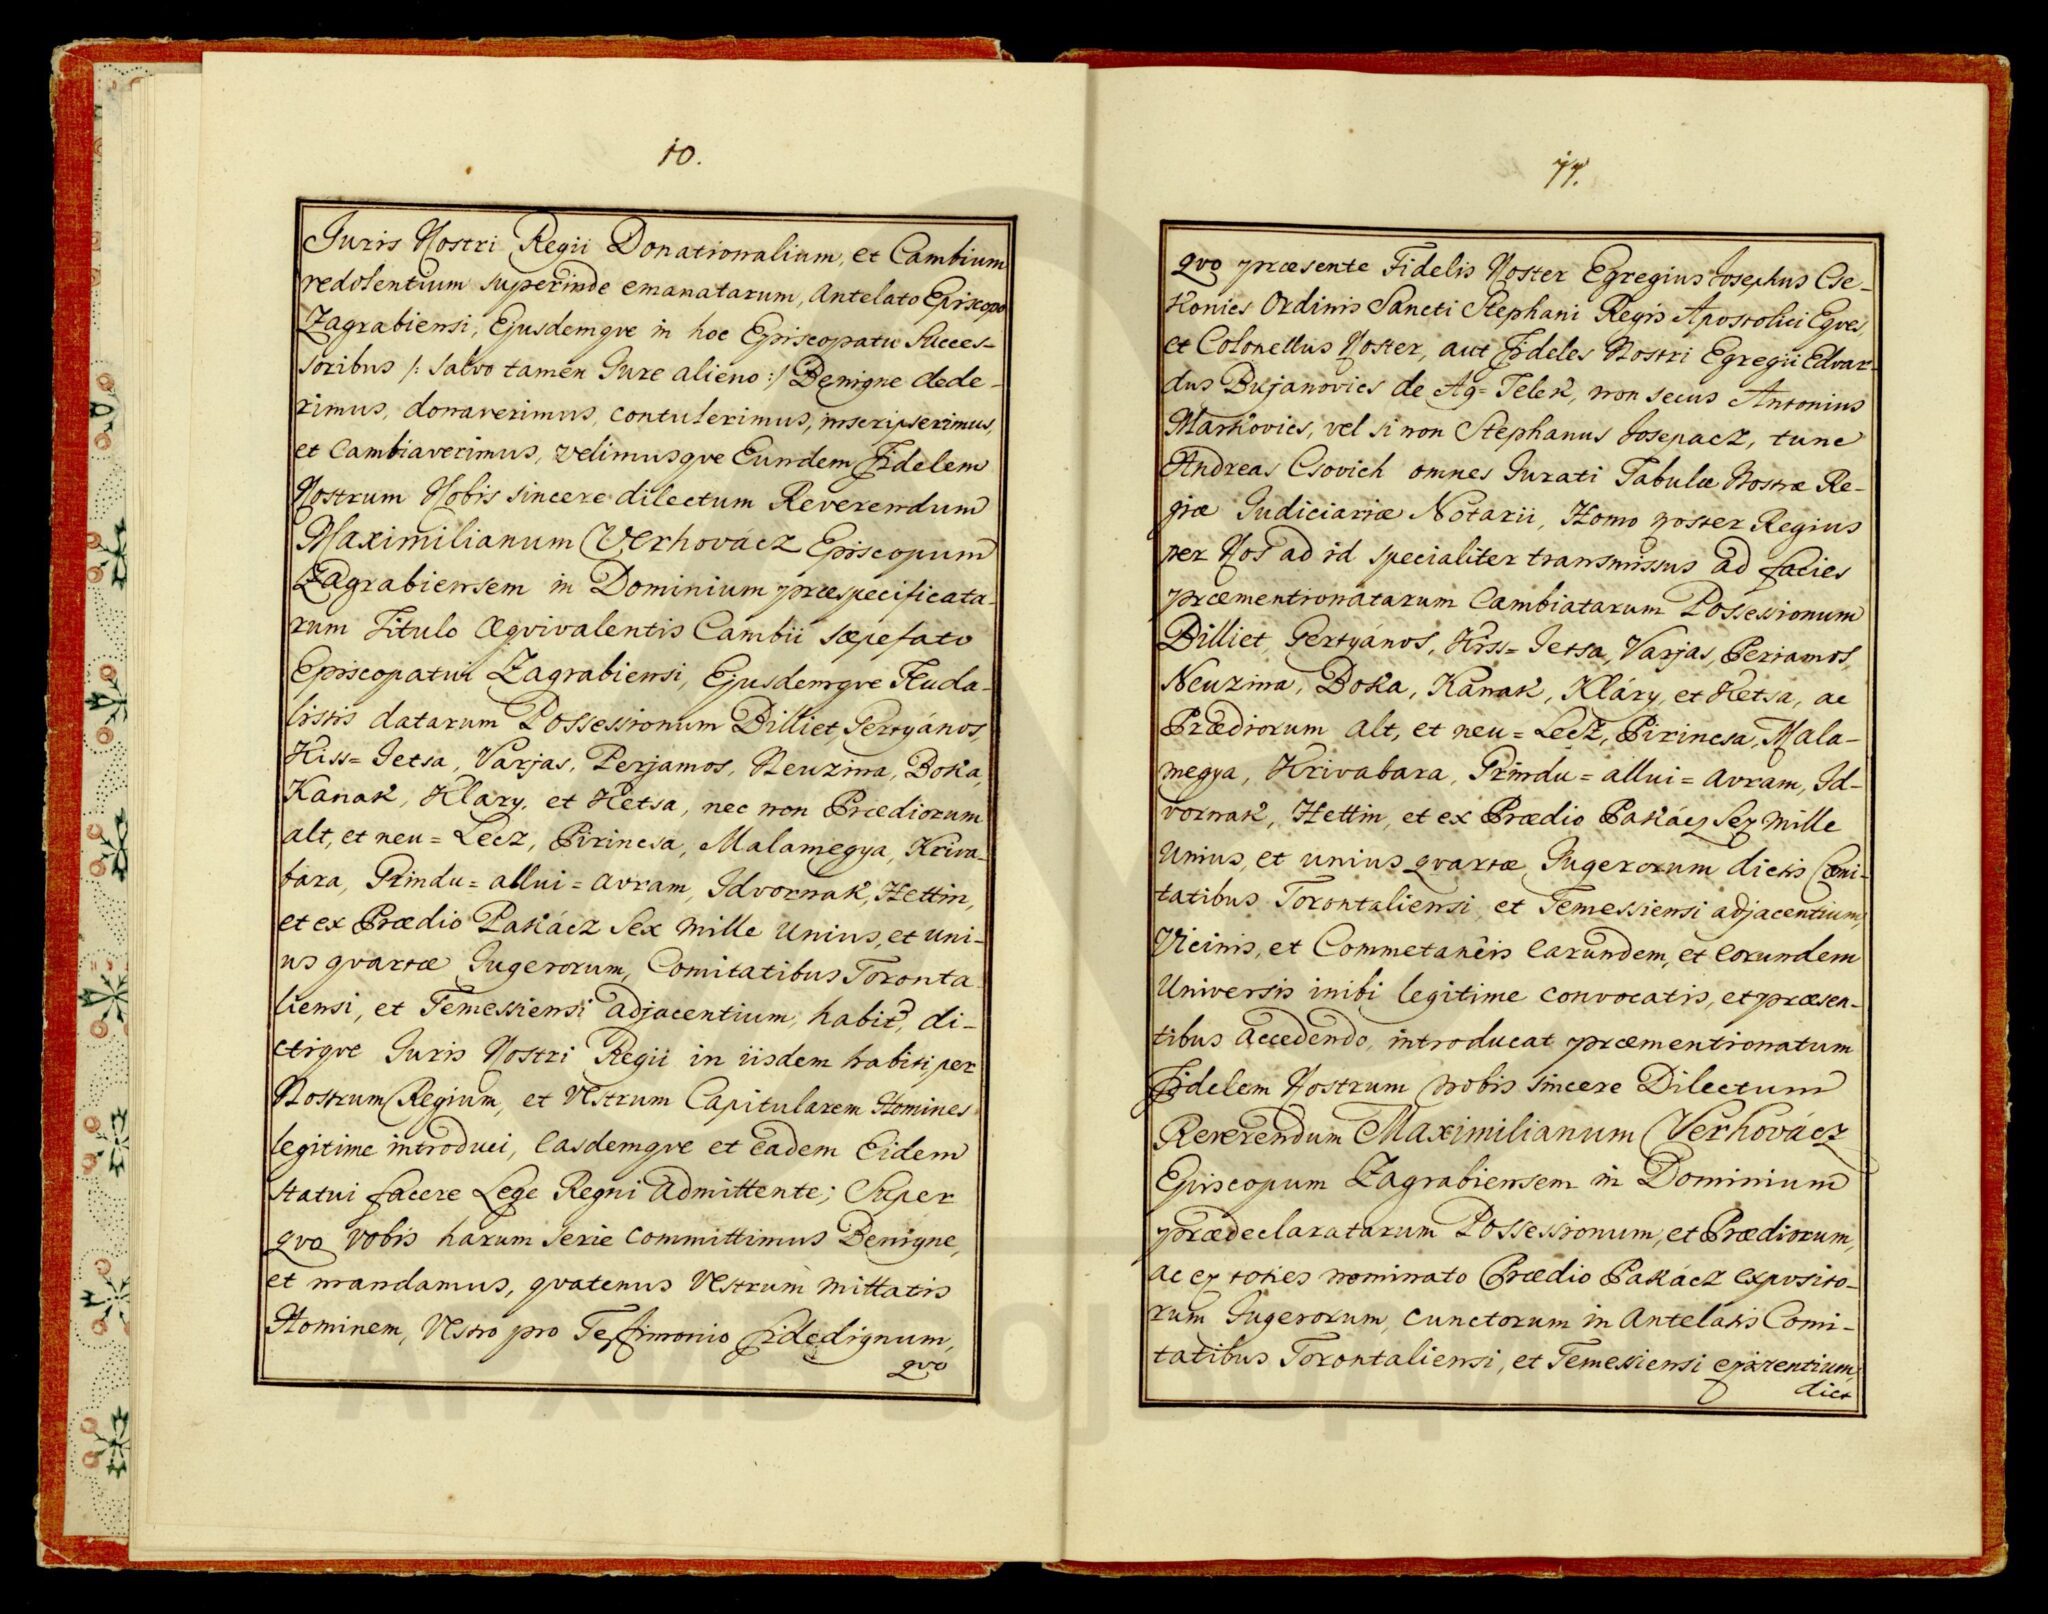 10.
Juris Nostri Regii Donationalium, et Cambium
redolentium superinde emanatarum, Antelato Episcopo
Zagrabiensi, Ejusdemqve in hoc Episcopatu Succes-
soribus /: salvo tamen Jure alieno :/ Benigne dede-
rimus, donaverimus, contulerimus, inscripserimus,
et Cambiaverimus, velimusqve Eundem Fidelem
Nostrum Nobis sincere dilectum Reverendum
Maximilianum Verhovácz Episcopum
Zagrabiensem in Dominium præspecificata-
rum Titulo Æqvivalentis Cambii sæpefato
Episcopatui Zagrabiensi, Ejusdemqve Huda-
listis datarum Possessionum Billiet, Gertyános,
Kiss= Jetsa, Varjas, Perjamos, Neuzina, Boka,
Kanak, Klary, et Hetsa, nec non Prædiorum
alt, et neu= Lecz, Pirincsa, Malamegya, Kriva-
bara, Grindu= allui= avram, Idvornak, Hettin,
et ex Prædio Pakácz Sex mille Unius, et uni-
us qvartæ Jugerorum, Comitatibus Toronta-
liensi, et Temessiensi adjacentium, habit, di-
ctiqve Juris Nostri Regii in iisdem habiti, per
Nostrum Regium, et Vestrum Capitularem Homines
legitime introduci, Easdemqve et Eadem Eidem
statui facere Lege Regni Admittente; Super
qvo vobis harum serie Committimus Benigne,
et mandamus, qvatenus Vestrum mittatis
Hominem, Vestro pro Testimonio Fidedignum,
qvo
11.
qvo præsente Fidelis Noster Egregius Josephus Cse-
Konics Ordinis Sancti Stephani Regis Apostolici Eqves,
et Colonellus Noster, aut Fideles Nostri Egregii Edvar-
dus Bujanovics de Ag= Telek, non secus Antonius
Markovics, vel si non Stephanus Josepacz, tunc
Andreas Csovich omnes Jurati Tabulæ Nostræ Re-
giæ Judiciariæ Notarii, Homo noster Regius
per Nos ad id specialiter transmissus ad facies
præmentionatarum Cambiatarum Possessionum
Billiet, Gertyános, Kiss= Jetsa, Varjas, Periamos,
Neuzina, Boka, Kanak, Kláry, et Hetsa, ac
Prædiorum alt, et neu= Lecz, Pirincsa, Mala-
megya, Krivabara, Grindu= allui= avram, Id-
vornak, Hettin, et ex Prædio Pakácz Sex mille
Unius, et unius qvartæ Jugerorum dictis Comi-
tatibus Torontaliensi et Temessiensi adjacentium,
Vicinis, et Commetaneis Earundem, et Eorundem
Universis inibi legitime convocatis, et præsen-
tibus accedendo, introducat præmentionatum
Fidelem Nostrum nobis sincere Dilectum
Reverendum Maximilianum Verhovácz
Episcopum Zagrabiensem in Dominium
prædeclaratarum Possessionum, et Prædiorum,
ac ex toties nominato Prædio Pakácz exposito-
rum Jugerorum, cunctorum in Antelatis Comi-
tatibus Torontaliensi, et Temessiensi
dict